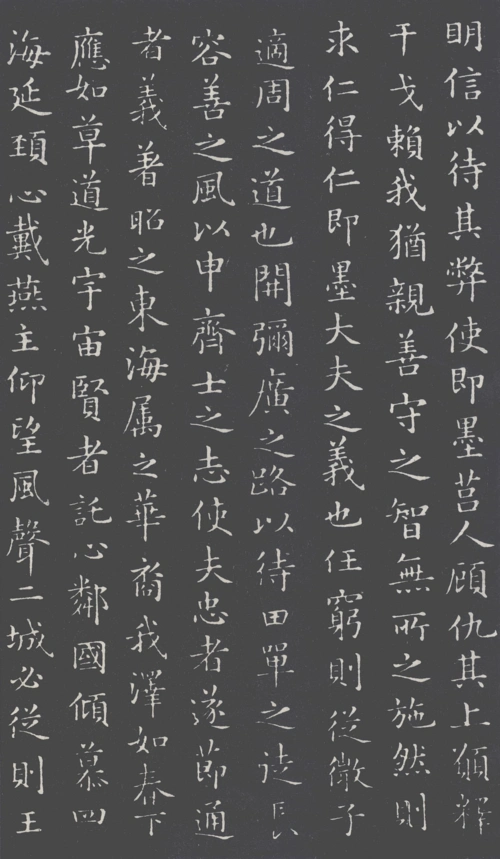 明信以待其弊使即墨莒人顧仇其上願釋
干戈賴我猶親善守之智無所之施然則
求仁得仁即墨大夫之義也任窮則從微子
適周之道也開彌廣之路以待田單之徒長
容善之風以申齊士之志使夫忠者遂節通
者義著昭之東海属之華裔我澤如春下
應如草道光宇宙賢者託心鄰國傾慕四
海延頚心戴燕主仰望風聲二城必從則王